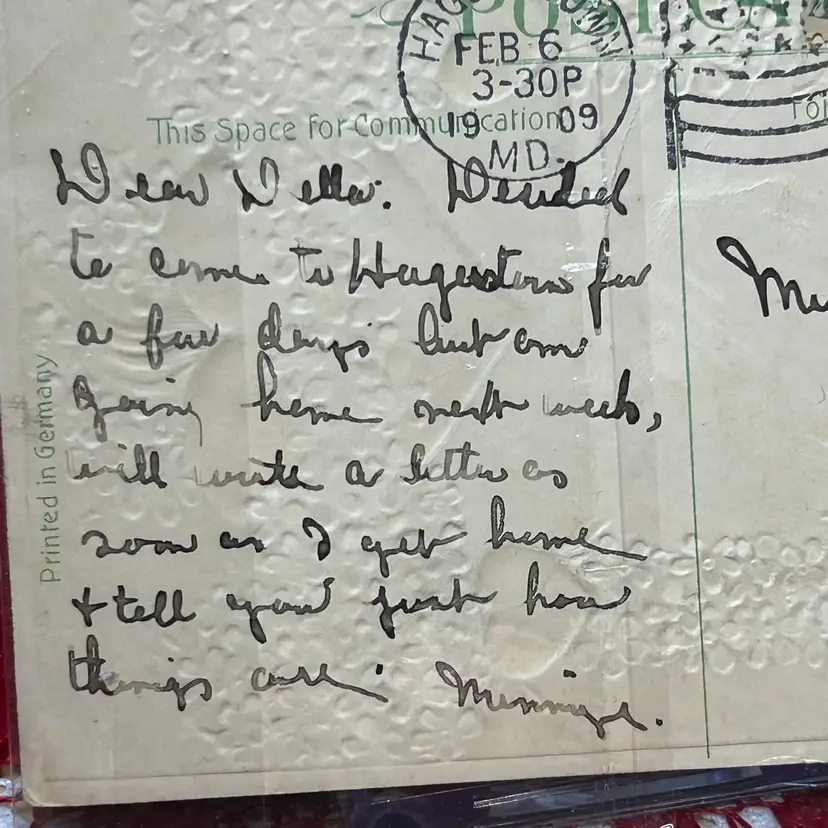 POST CA
HAG WN
FEB 6
3-30P
19 09
MD.
This Space for Communication
Fo
Dear Della: Decided
to come to Hagerstown for
a few days but am
going home next week,
will write a letter as
soon as I get home
& tell you just how
things are. Minnie.
Printed in Germany